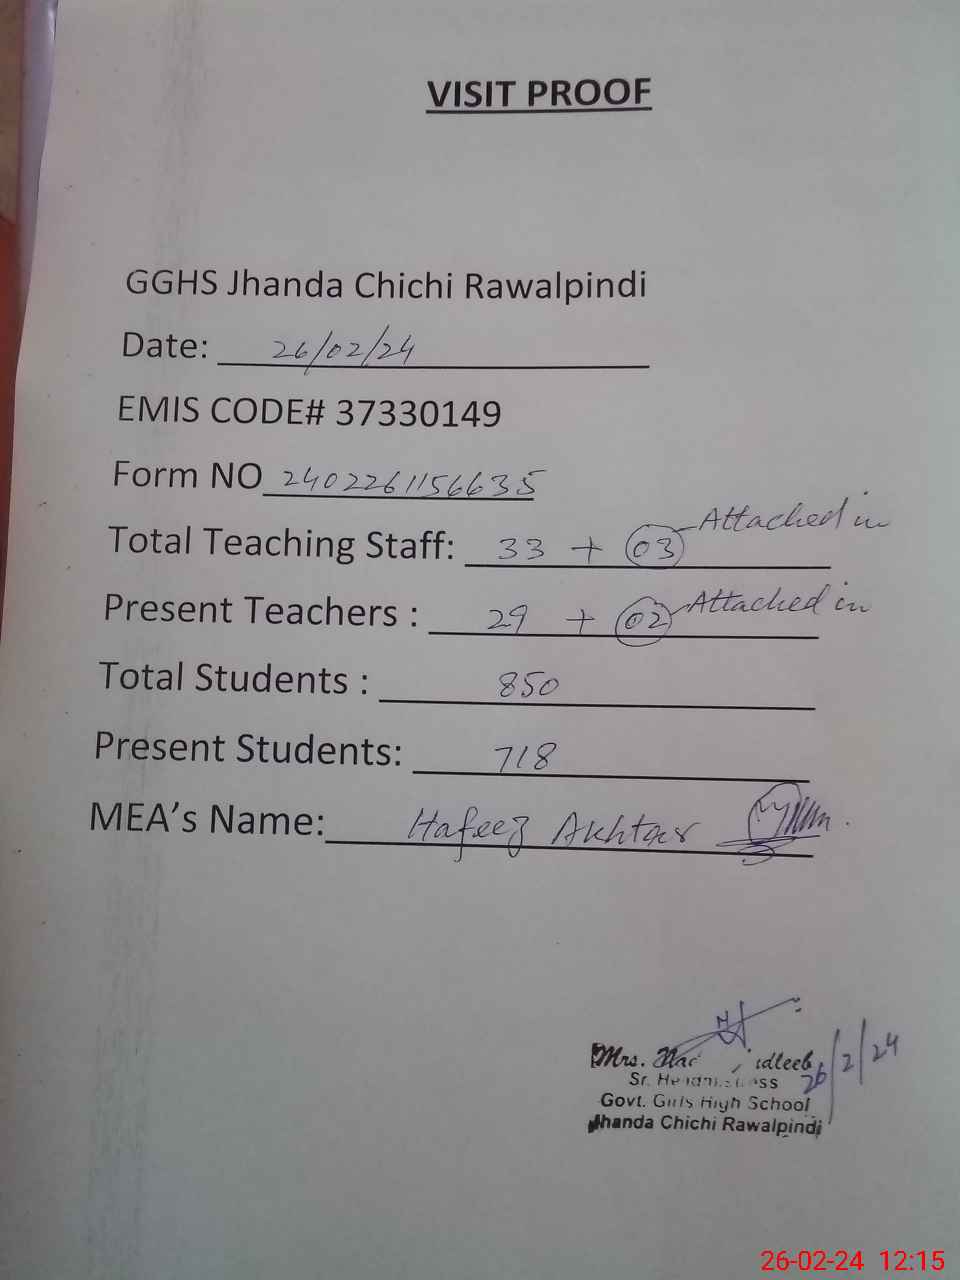 VISIT PROOF
GGHS Jhanda Chichi Rawalpindi
Date: 26/02/24
EMIS CODE# 37330149
Form NO 2402261156635
Total Teaching Staff: 33 + 03 Attached in
Present Teachers : 29 + 02 Attached in
Total Students : 850
Present Students: 718
MEA's Name: Hafeez Akhtar
Mrs.
Sr. Headmistress 26/2/24
Govt. Girls High School
Jhanda Chichi Rawalpindi
26-02-24 12:15